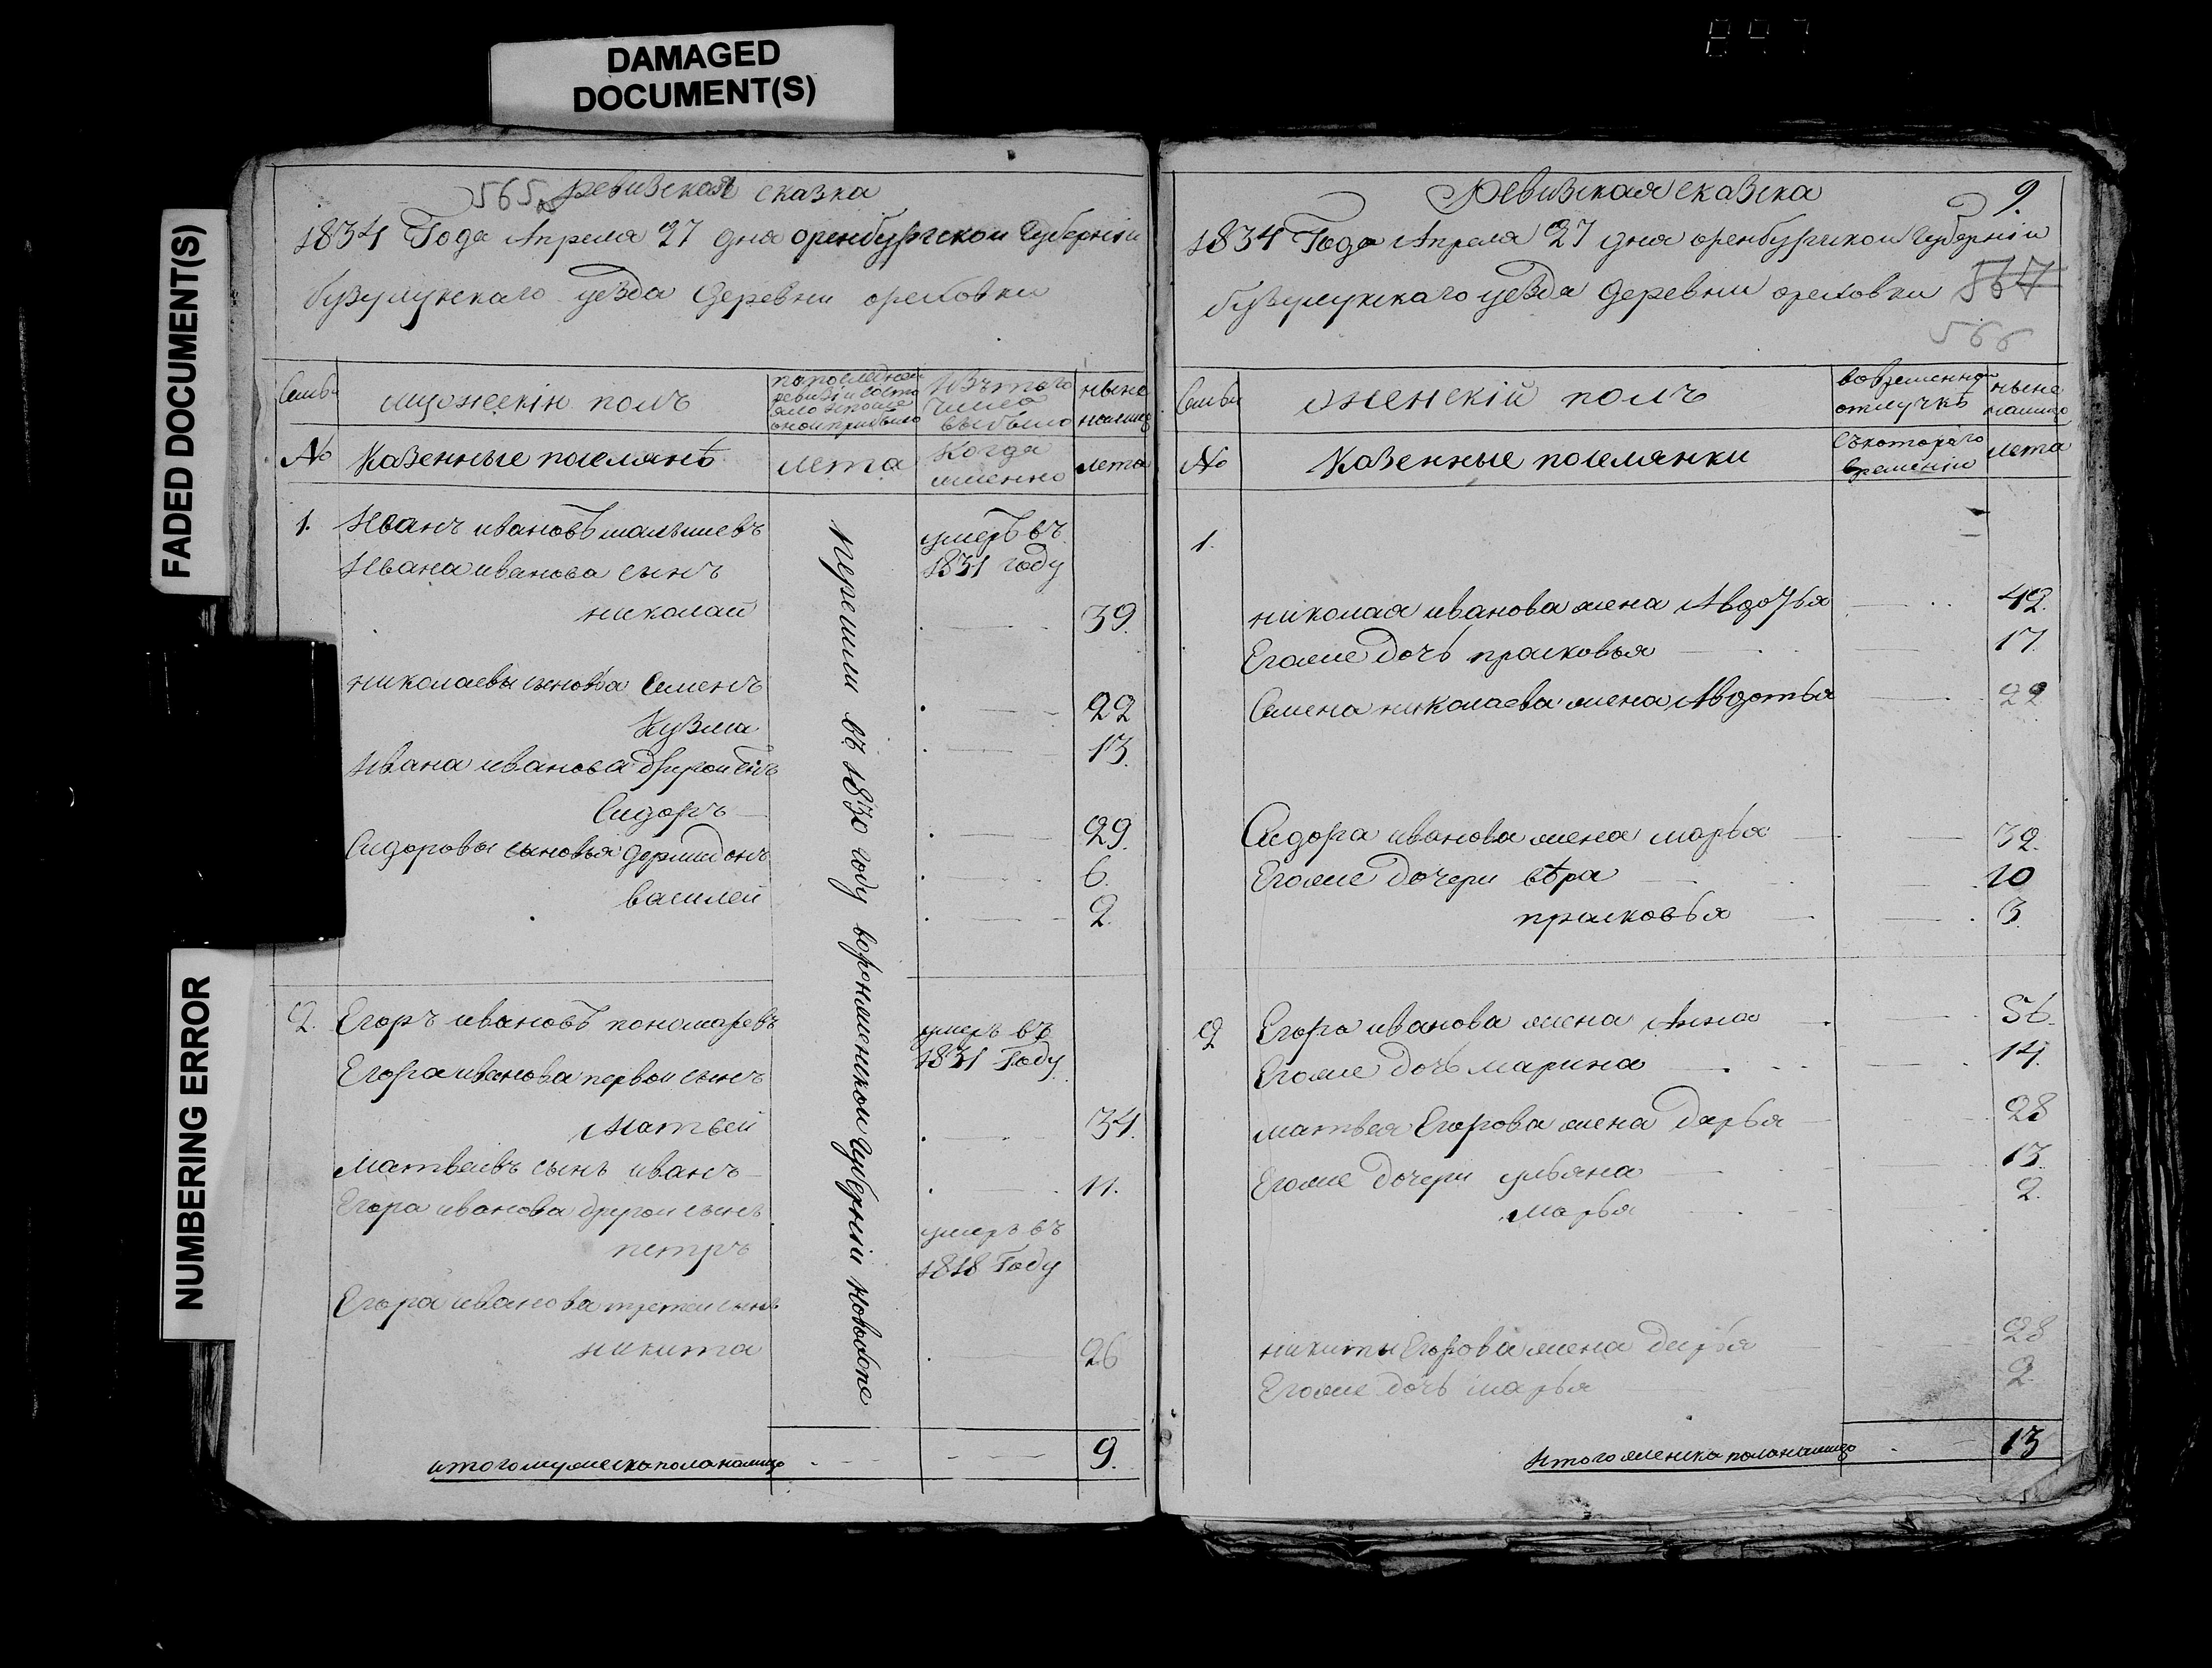 DAMAGED
DOCUMENT(S)
FADED DOCUMENT(S)
NUMBERING ERROR
565 ревизская сказка
1834 Года Апреля 27 дня оренбургской Губернiи
бузулукскаго уезда деревни ореховки
Семьи
мужескiи полъ
по последней
ревизiи состо
яло и после
оной прибыло
Изъ того
числа
выбыло
ныне
налицо
№
Казенные поселянѣ
лета
Когда
именно
лета
1. Иванъ ивановъ малышевъ
умеръ въ
1831 году
Ивана иванова сынъ
николай
39.
николаевы сыновья Семенъ
22
Кузма
13.
Ивана иванова другой сынъ
Сидоръ
29.
Сидоровы сыновья дормидонъ
6.
василей
2.
перешли въ 1830 году воронеженской Губернiи Новохопе
2. Егоръ ивановъ пономаревъ
умеръ въ
1831 Году
Егора иванова первой сынъ
Матвей
34.
Матвеевъ сынъ иванъ
11.
Егора иванова другой сынъ
петръ
умеръ въ
1818 Году
Егора иванова третей сынъ
никита
26
итого мужеска пола налицо
9.
Ревизская сказка
9.
1834 Года Апреля 27 дня оренбургской Губернiи
бузулукскаго уезда деревни ореховки
567
566
Семьи
женскiй полъ
во временной
отлучкѣ
ныне
налицо
№
Казенные поселянки
съ котораго
времянiи
лета
1.
николая иванова жена Авдотья
42.
Егоже дочь прасковья
17.
Семена николаева жена Авдотья
22
Сидора иванова жена марья
32.
Егоже дочери вѣра
10
прасковья
3.
2
Егора иванова жена Анна
56.
Егоже дочь марина
14.
матвея Егорова жена дарья
28
Егоже дочери ульяна
13.
марья
2.
никиты Егорова жена дарья
28
Егоже дочь марья
2.
Итого женска пола налицо
13